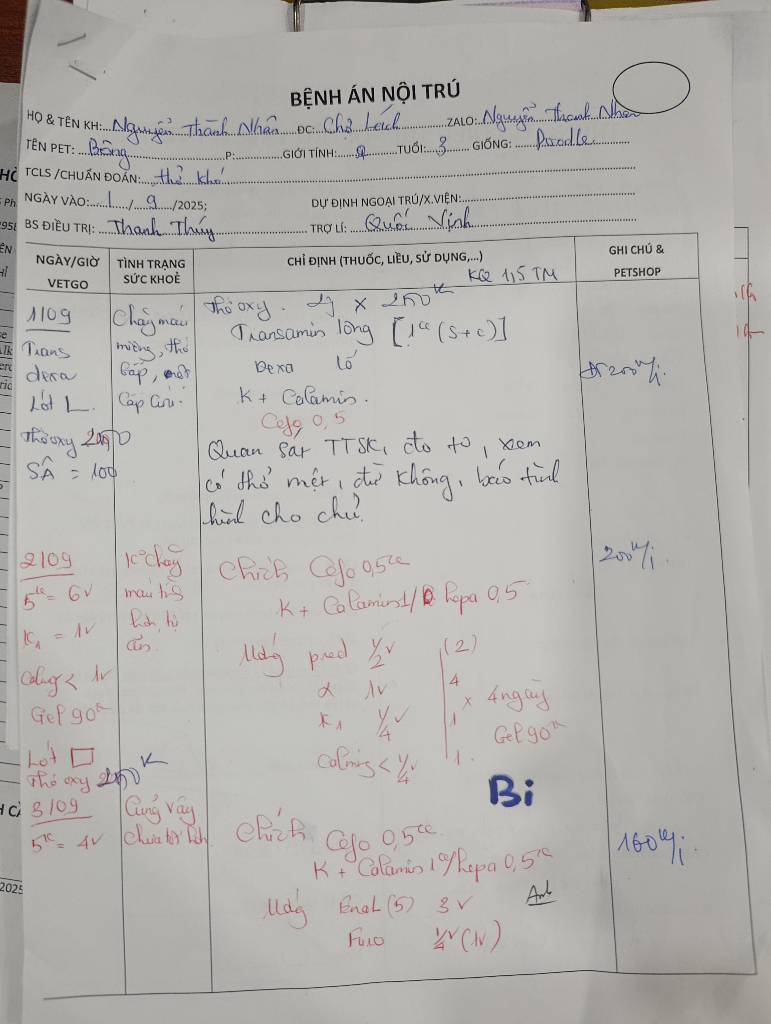 BỆNH ÁN NỘI TRÚ
HỌ & TÊN KH: Nguyễn Thành Nhân ĐC: Chợ Lách ZALO: Nguyễn Thanh Nhân
TÊN PET: Bông P: GIỚI TÍNH: ♀ TUỔI: 3 GIỐNG: Poodle
TCLS /CHUẨN ĐOÁN: thở khó
NGÀY VÀO: 1 / 9 /2025; DỰ ĐỊNH NGOẠI TRÚ/X.VIỆN:
BS ĐIỀU TRỊ: Thanh Thúy TRỢ LÍ: Quốc Vịnh
NGÀY/GIỜ VETGO
TÌNH TRẠNG SỨC KHOẺ
CHỈ ĐỊNH (THUỐC, LIỀU, SỬ DỤNG,...)
KQ 1,5 TM
GHI CHÚ & PETSHOP
1109
Trans
dexa
Lót L.
Thở oxy
SÂ = 100
Chảy máu
miệng, thở
gấp,
cấp cứu.
Thở oxy. x 250K
Transamin lòng [1cc (S+c)]
Dexa
K + Calamin.
Cefo 0,5
Quan sát TTSK, đo to, xem
có thở mệt, đừ không, báo tình
hình cho chủ.
200
2109
5cc = 6v
K1 = 1v
1v
Gel 90K
Lót
Thở oxy 250K
K° chảy
máu
ăn.
Chích Cefo 0,5cc
K + Calamin 1/ hepa 0,5
Uống pred 1/2 v (2)
α 1v 4
K1 1/4 v 1 x 4 ngày
Gel 90K
< 1/4 1.
200
Bi
3109
5cc = 4v
Cũng vậy
Chích Cefo 0,5cc
K + Calamin 1cc/hepa 0,5cc
Uống Enal (5) 3v
Furo 1/4 v (1v)
160
2025